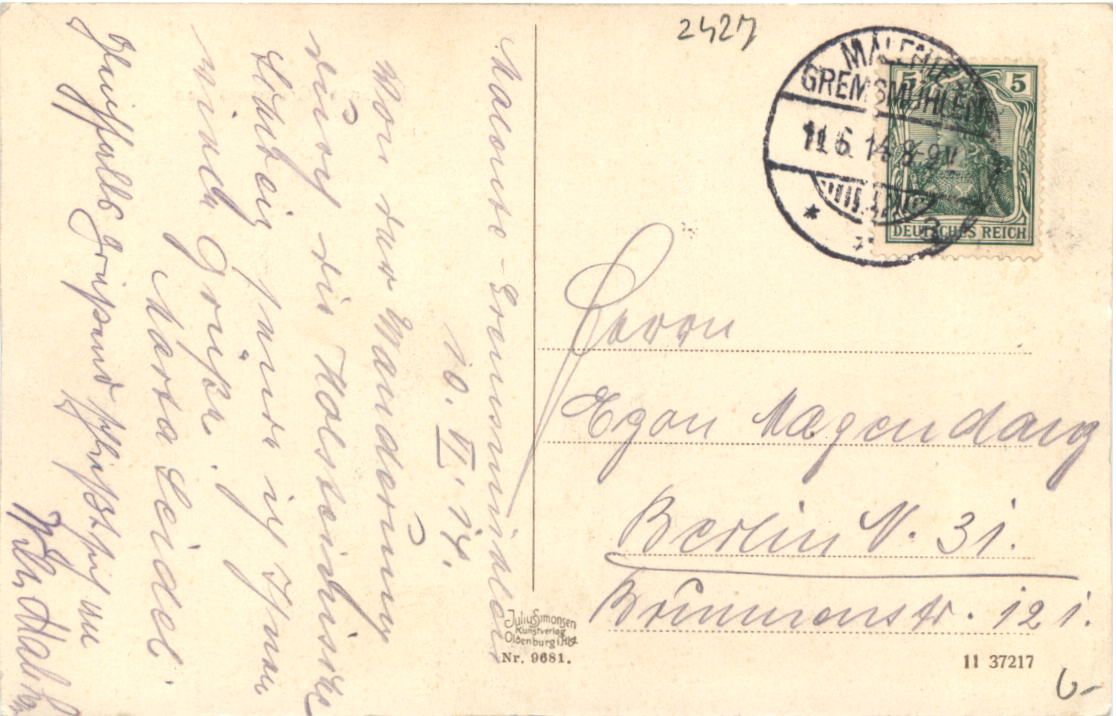 Malente-Gremsmühlen
10. VI. 14.
Von der Wanderung
durch die Holsteinische
Schweiz sende ich Ihnen
viele Grüße.
Marta Seidel.
Gleichfalls grüßend
2427
MALENTE
GREMSMÜHLEN
11.6.14 8-9V.
5 5
DEUTSCHES REICH
Herrn
Egon Magendanz
Berlin N. 31.
Brunnenstr. 121.
Julius Simonsen
Kunstverlag
Oldenburg i. Hlst.
Nr. 9681.
11 37217
6-